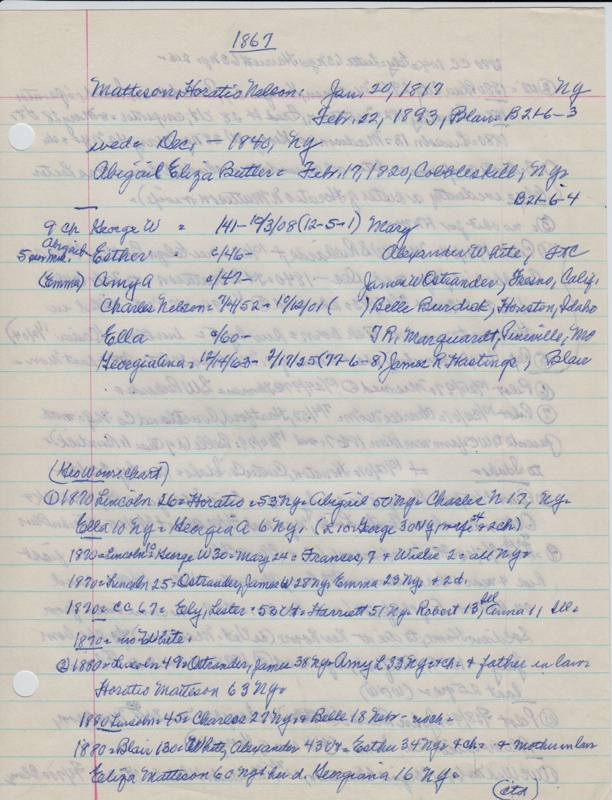 1867
Matteson, Horatio Nelson: Jan. 20, 1817 Ny
Feb. 22, 1893, Blair = B21-6-3
wed = Dec. — 1840, Ny
Abigail Eliza Butler = Feb. 17, 1820, Cobbleskill, Ny.
B21-6-4
9 ch George W = /41 - 10/3/08 (12-5-1) Mary
Abigail
5 own Mat. Esther = c/46 - Alexander White,
(Emma) Amy A c/47 - James W Ostrander, Fresno, Calif.
Charles Nelson = 7/4/52 - 10/12/01 ( ) Belle Burdick, Houston, Idaho
Ella c/60 - T.R. Marquardt, , Mo
Georgianna = 12/4/63 - 2/17/25 (77-6-8) James R Hastings, Blair
(Geo W own chart)
① 1870 Lincoln 26 = Horatio = 53 Ny = Abigail 50 Ny = Charles N 17, Ny =
Ella 10 Ny = Georgia A 6 Ny. (L 10 = George 30 Ny, & 2 ch)
1870 = Lincoln 10 = George W 30 = Mary 24 = Frances, 7 + Willie 2 = all Ny =
1870 = Lincoln 25 = Ostrander, James W 28 Ny, Emma 23 Ny + 2 d.
1870 = CC 67 = Ely, Lester = 53 Vt = Harriett 51 Ny = Robert 13, Ill Anna 11 Ill =
1870 = no White =
② 1880 = Lincoln 49 = Ostrander, James 38 Ny = Amy L 33 Ny + ch = + father in law
Horatio Matteson 63 Ny =
1880 Lincoln = 45 = Charles 27 Ny = + Belle 18 Nebr - no ch =
1880 = Blair 130 = White, Alexander 43 Vt = Esther 34 Ny = + ch = + mother in law
Eliza Matteson 60 Ny + her d. Georgiana 16 Ny =
(ctd)